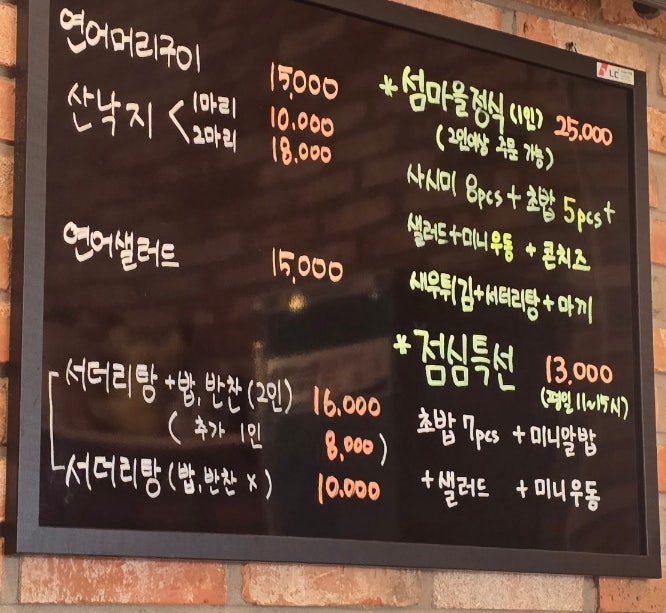 연어머리구이 15,000
산낙지 < 1마리 10.000
2마리 18,000
연어샐러드 15,000
서더리탕 +밥, 반찬 (2인) 16,000
( 추가 1인 8,000 )
서더리탕 (밥, 반찬 x) 10.000
* 섬마을정식 (1인) 25,000
( 2인이상 주문 가능)
사시미 8pcs + 초밥 5pcs +
샐러드+미니우동 + 콘치즈
새우튀김+서더리탕+마끼
* 점심특선 13,000
(평일 11~15시)
초밥 7pcs + 미니알밥
+ 샐러드 + 미니우동